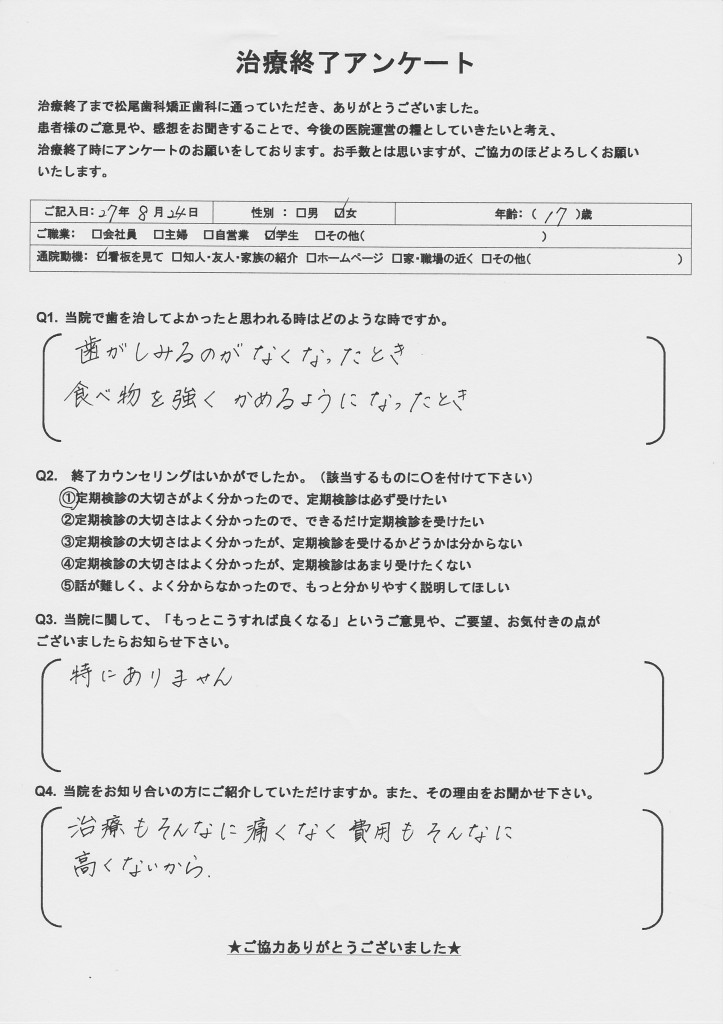 治療終了アンケート
治療終了まで松尾歯科矯正歯科に通っていただき、ありがとうございました。
患者様のご意見や、感想をお聞きすることで、今後の医院運営の糧としていきたいと考え、
治療終了時にアンケートのお願いをしております。お手数とは思いますが、ご協力のほどよろしくお願い
いたします。
ご記入日：27年 8月24日 性別 ： □男 ☑女 年齢：（ 17 ）歳
ご職業： □会社員 □主婦 □自営業 ☑学生 □その他（ ）
通院動機： ☑看板を見て □知人・友人・家族の紹介 □ホームページ □家・職場の近く □その他（ ）
Q1. 当院で歯を治してよかったと思われる時はどのような時ですか。
歯がしみるのがなくなったとき
食べ物を強くかめるようになったとき
Q2. 終了カウンセリングはいかがでしたか。（該当するものに〇を付けて下さい）
①定期検診の大切さがよく分かったので、定期検診は必ず受けたい
②定期検診の大切さはよく分かったので、できるだけ定期検診を受けたい
③定期検診の大切さはよく分かったが、定期検診を受けるかどうかは分からない
④定期検診の大切さはよく分かったが、定期検診はあまり受けたくない
⑤話が難しく、よく分からなかったので、もっと分かりやすく説明してほしい
Q3. 当院に関して、「もっとこうすれば良くなる」というご意見や、ご要望、お気付きの点が
ございましたらお知らせ下さい。
特にありません
Q4. 当院をお知り合いの方にご紹介していただけますか。また、その理由をお聞かせ下さい。
治療もそんなに痛くなく費用もそんなに
高くないから.
★ご協力ありがとうございました★